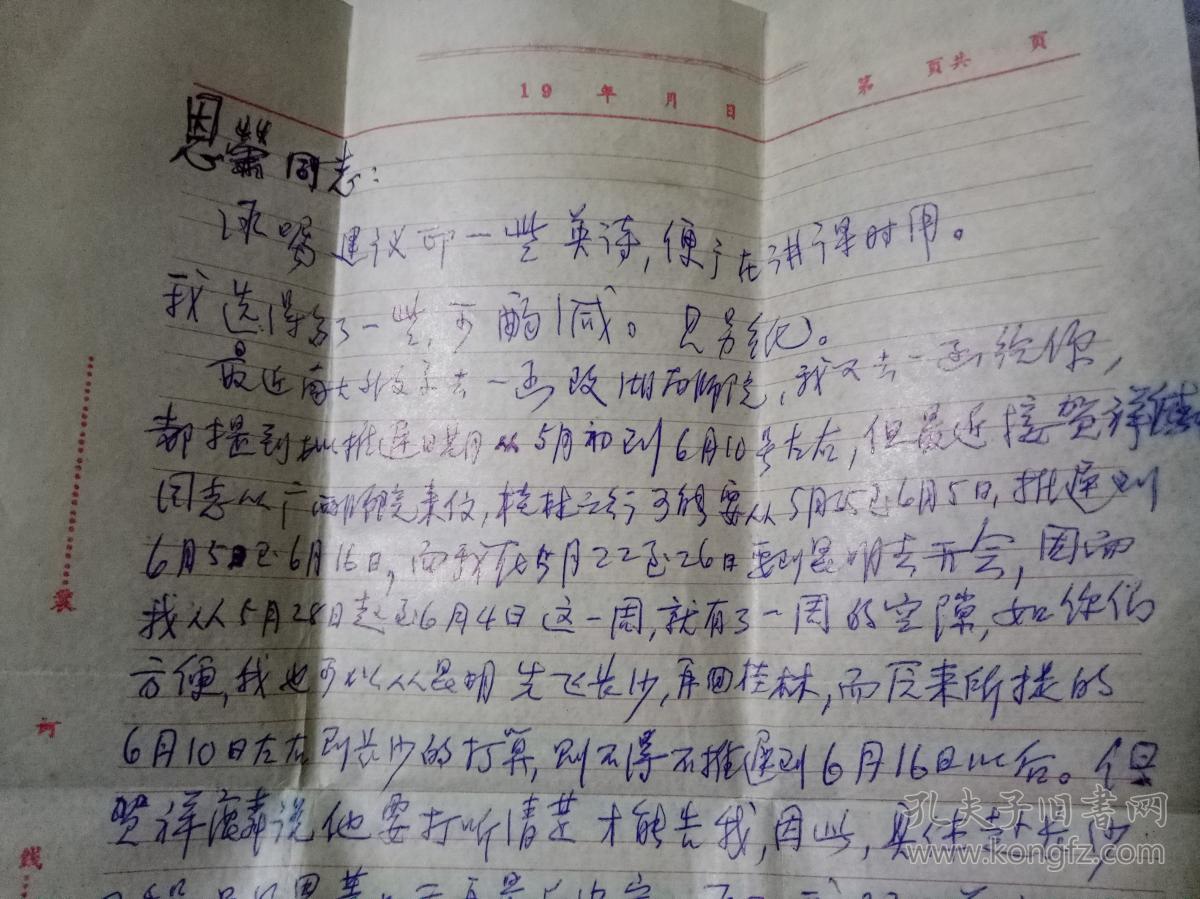 19 年 月 日
第 页共 页
恩 同志：
承嘱建议印一些英诗，便于在讲课时用。
我选得多了一些，可酌减。见另纸。
最近南大外文系去一函致湖南师院，我又去一函给你，
都提到拟推迟日期从5月初到6月10号左右，但最近接贺祥麟
同志从广西师院来信，桂林之行可能要从5月25至6月5日，推迟到
6月5日至6月16日，而我在5月22至26日要到昆明去开会，因而
我从5月28日起至6月4日这一周，就有了一周的空隙，如你们
方便，我也可以从昆明先飞长沙，再回桂林，而原来所提的
6月10日左右到长沙的打算，则不得不推迟到6月16日以后。但
贺祥麟说他要打听清楚才能告我，因此，具体去长沙
装
订
线
孔夫子旧书网
www.kongfz.com